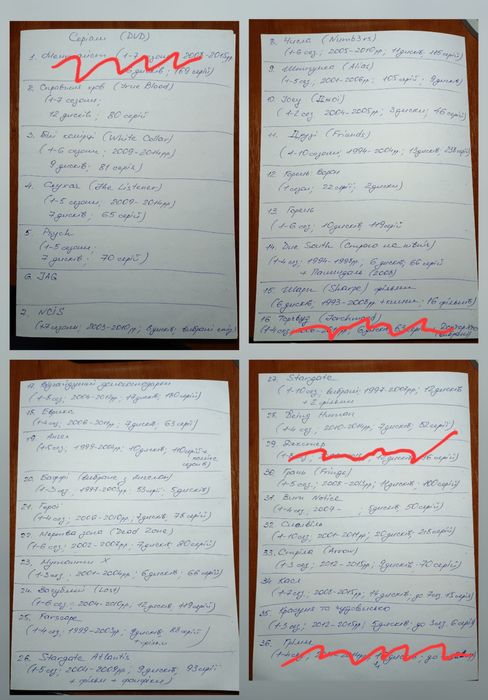 Серіали (DVD)
1. Менталіст (1-7 сезони; 2008-2015рр
дисків; 169 серій)
2. Справжня кров (True Blood)
(1-7 сезони;
12 дисків; 80 серій
3. Білі комірці (White Collar)
(1-6 сезони; 2009-2014рр)
9 дисків; 81 серія
4. Слухач (The Listener)
(1-5 сезони, 2009-2014рр)
7 дисків; 65 серій
5. Psych
(1-5 сезони;
7 дисків; 70 серій)
6. JAG
7. NCIS
(1-7 сезони; 2003-2010рр; 8 дисків; вибрані
8. Числа (Numb3rs)
(1-6 сез, 2005-2010рр; 11 дисків, 118 серій)
9. Шпигунка (Alias)
(1-5 сез, 2001-2006рр; 105 серій; 9 дисків)
10. Joey (Джоі)
(1-2 сез 2004-2005рр; 3 диски; 46 серій)
11. Друзі (Friends)
(1-10 сезони; 1994-2004рр; 13 дисків; 238 серій)
12. Горець Ворон
(1 сезон; 22 серії; 2 диски)
13. Горець
(1-6 сез; 10 дисків 119 серій
14. Due South (Строго на північ)
(1-4 сез; 1994-1998рр, 6 дисків, 66 серій
+ (2008)
15. Шарп (Sharpe) фільми
(6 дисків; 1993-2008рр; 16 фільмів)
16. Торчвуд (Torchwood)
(1-4 сез
17. Відчайдушні домогосподарки
(1-8 сез; 2004-2012рр; 17 дисків; 180 серій)
18. Еврика
(1-4 сез; 7 дисків; 63 серії)
19. Ангел
(1-5 сез, 1999-2004рр; 10 дисків; 110 серій +
20. Баффі (вибране з Ангелом)
(1-3 сез, 1997-2003рр, 53 серії; 5 дисків)
21. Герої
(1-4 сез; 2006-2010рр; 9 дисків; 78 серій)
22. Мертва зона (Dead Zone)
(1-6 сез; 2002-2007рр; 7 дисків; 80 серій)
23. Мутанти Х
(1-3 сез, 2001-2004рр; 6 дисків; 66 серій)
24. Загублені (Lost)
(1-6 сез; 2004-2010рр; 12 дисків; 119 серій)
25. Farscape
(1-4 сез, 1999-2003рр; 8 дисків 88 серій
26. Stargate Atlantis
(1-5 сез; 2004-2009рр; 9 дисків, 93 серії
+ фільми + фанфіки)
27. Stargate
(1-10 сез; вибрані; 1997-2007рр; 17 дисків
+ 2 фільми
28. Being Human
(1-4 сез, 2010-2014рр; 7 дисків; 52 серії)
29. Декстер
30. Грань (Fringe)
(1-5 сез; 2008-2013рр; 11 дисків; 100 серій)
31. Burn Notice
(1-4 сез; 2007- ; 5 дисків; 50 серій)
32. Смолвіль
(1-10 сез; 2001-2011рр; 20 дисків; 218 серій)
33. Стріла (Arrow)
(1-3 сез; 2012-2015рр; 9 дисків; 70 серій)
34. Касл
(1-7 сез; 2008-2015рр; 16 дисків, до 7 сез 13 серії)
35. Красуня та чудовисько
(1-3 сез; 2012-2015рр; 5 дисків; до 3 сез. 6 серії)
36. Грімм
(1-4 сез;